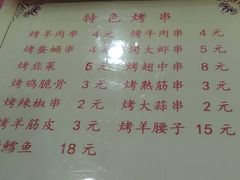 特色烤串
烤羊肉串 4元 烤牛肉串 4元
烤蚕蛹串 4元 烤大虾串 5元
烤韭菜 5元 烤翅中串 8元
烤鸡脆骨 3元 烤熟筋串 3元
烤辣椒串 2元 烤大蒜串 2元
烤羊筋皮 3元 烤羊腰子 15元
鳕鱼 18元